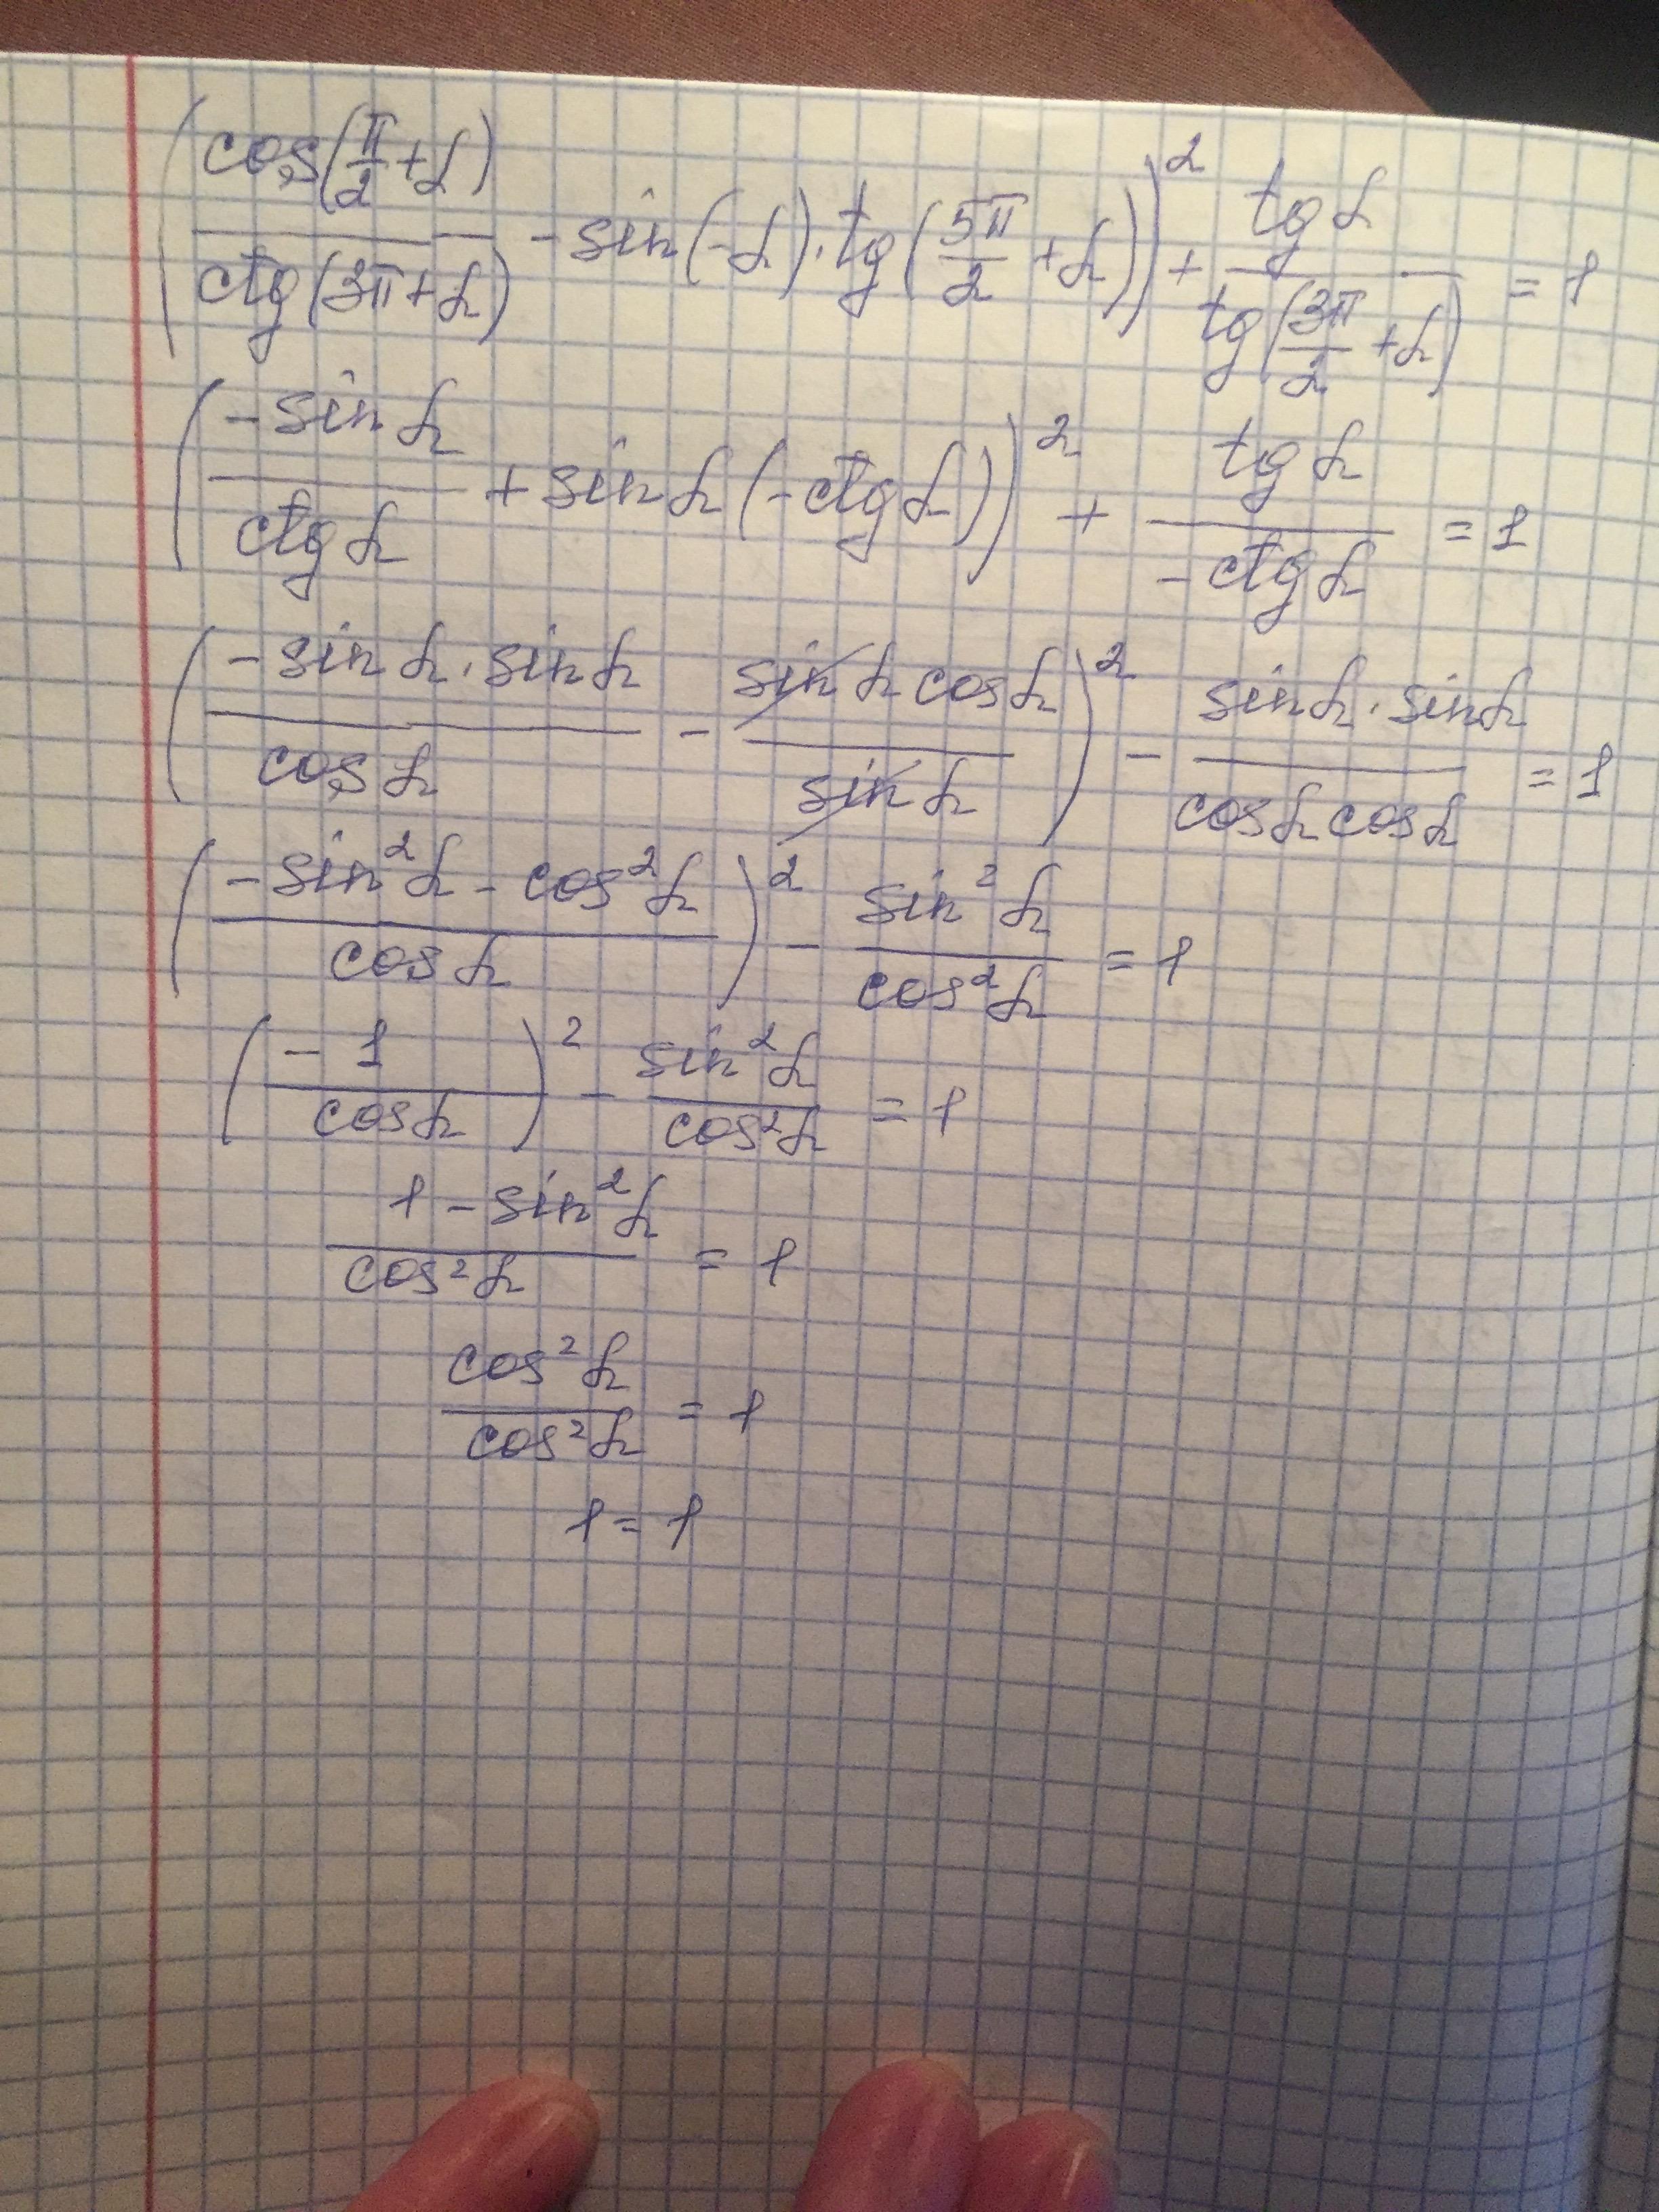 (cos(π/2+α)/ctg(3π+α) - sin(-α)·tg(5π/2+α))² + tg α/tg(3π/2+α) = 1
(-sin α/ctg α + sin α(-ctg α))² + tg α/-ctg α = 1
(-sin α·sin α/cos α - sin α cos α/sin α)² - sin α·sin α/cos α cos α = 1
(-sin²α - cos²α/cos α)² - sin²α/cos²α = 1
(-1/cos α)² - sin²α/cos²α = 1
1 - sin²α/cos²α = 1
cos²α/cos²α = 1
1 = 1